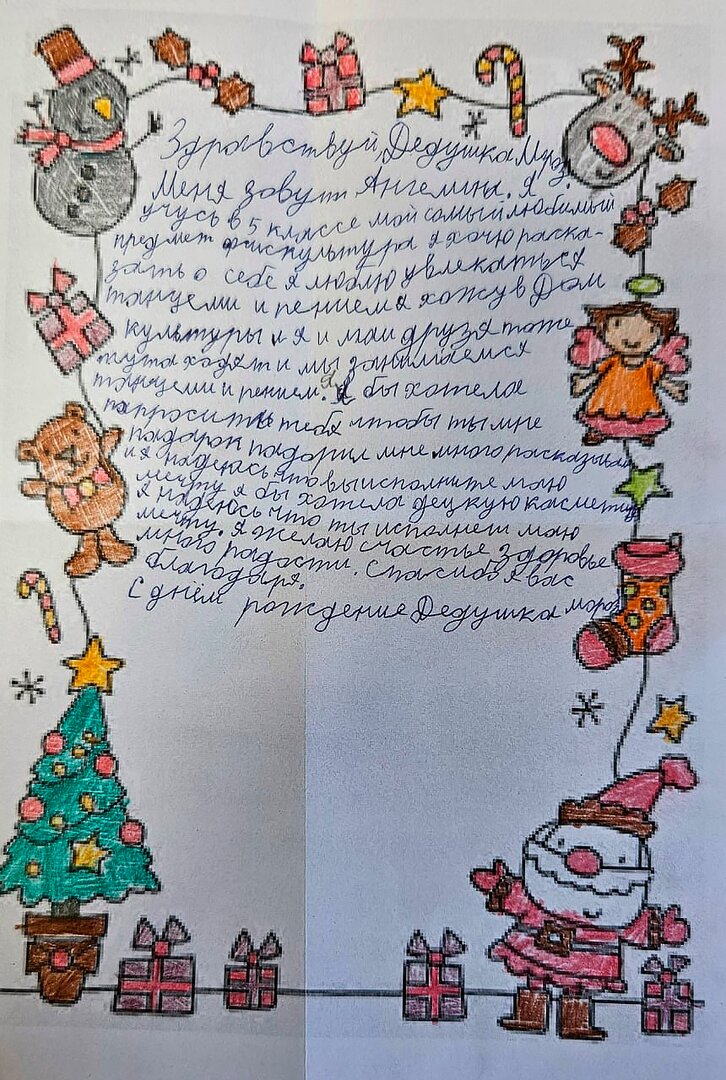 Здравствуй, Дедушка Мороз.
Меня зовут Ангелина. Я
учусь в 5 классе мой самый любимый
предмет фискультура я хочу раска-
зать о себе я люблю увлекаться
танцеми и пением я хожу в Дом
культуры и я и маи друзя тоже
тута ходят и мы занимаемся
танцеми и пением. Я бы хотела
папросить тебя чтобы ты мне
падарок падарил мне много расказывали
и я надеюсь что вы исполните маю
мечту я бы хотела децкую касметику
я надеюсь что ты исполнеш маю
мечту. Я желаю счастье здоровье
много радасти. Спасибо я вас
благодаря.
С днём рождение Дедушка мороз